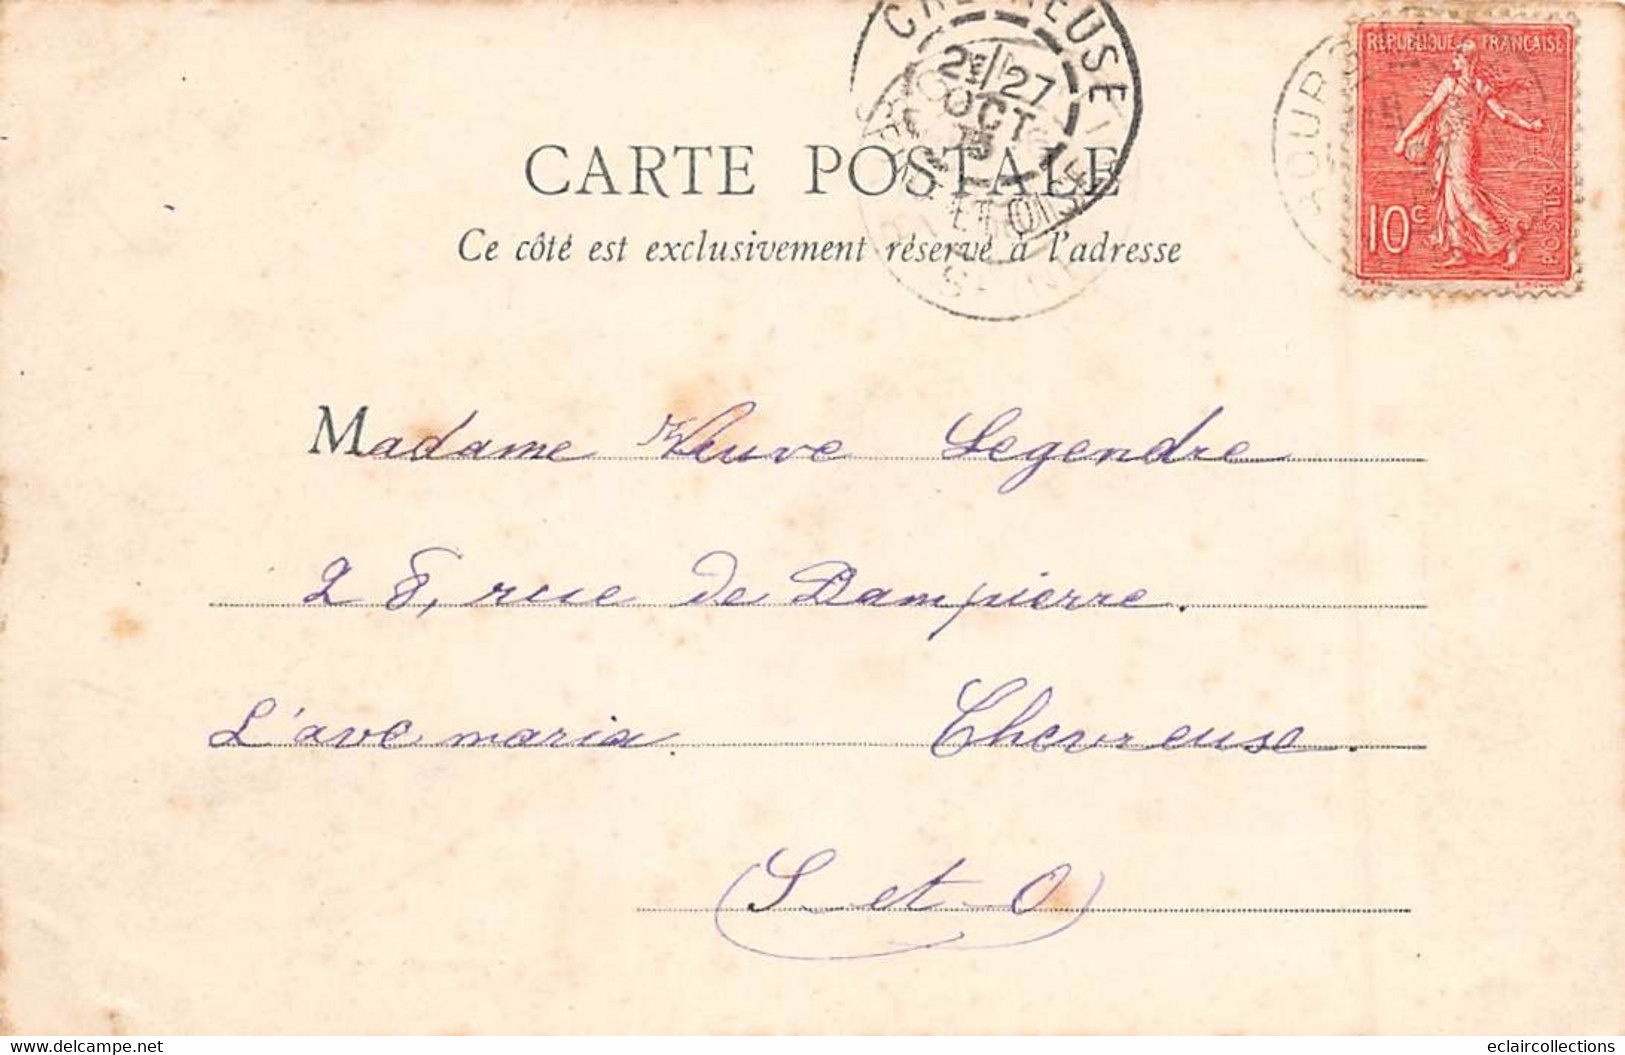 CHEVREUSE
2E/27
OCT
ET OISE
RÉPUBLIQUE FRANÇAISE
10c
POSTES
CARTE POSTALE
Ce côté est exclusivement réservé à l'adresse
Madame Veuve Legendre
28, rue de Dampierre.
L'ave maria. Chevreuse.
(S-et-O)
www.delcampe.net
eclaircollections